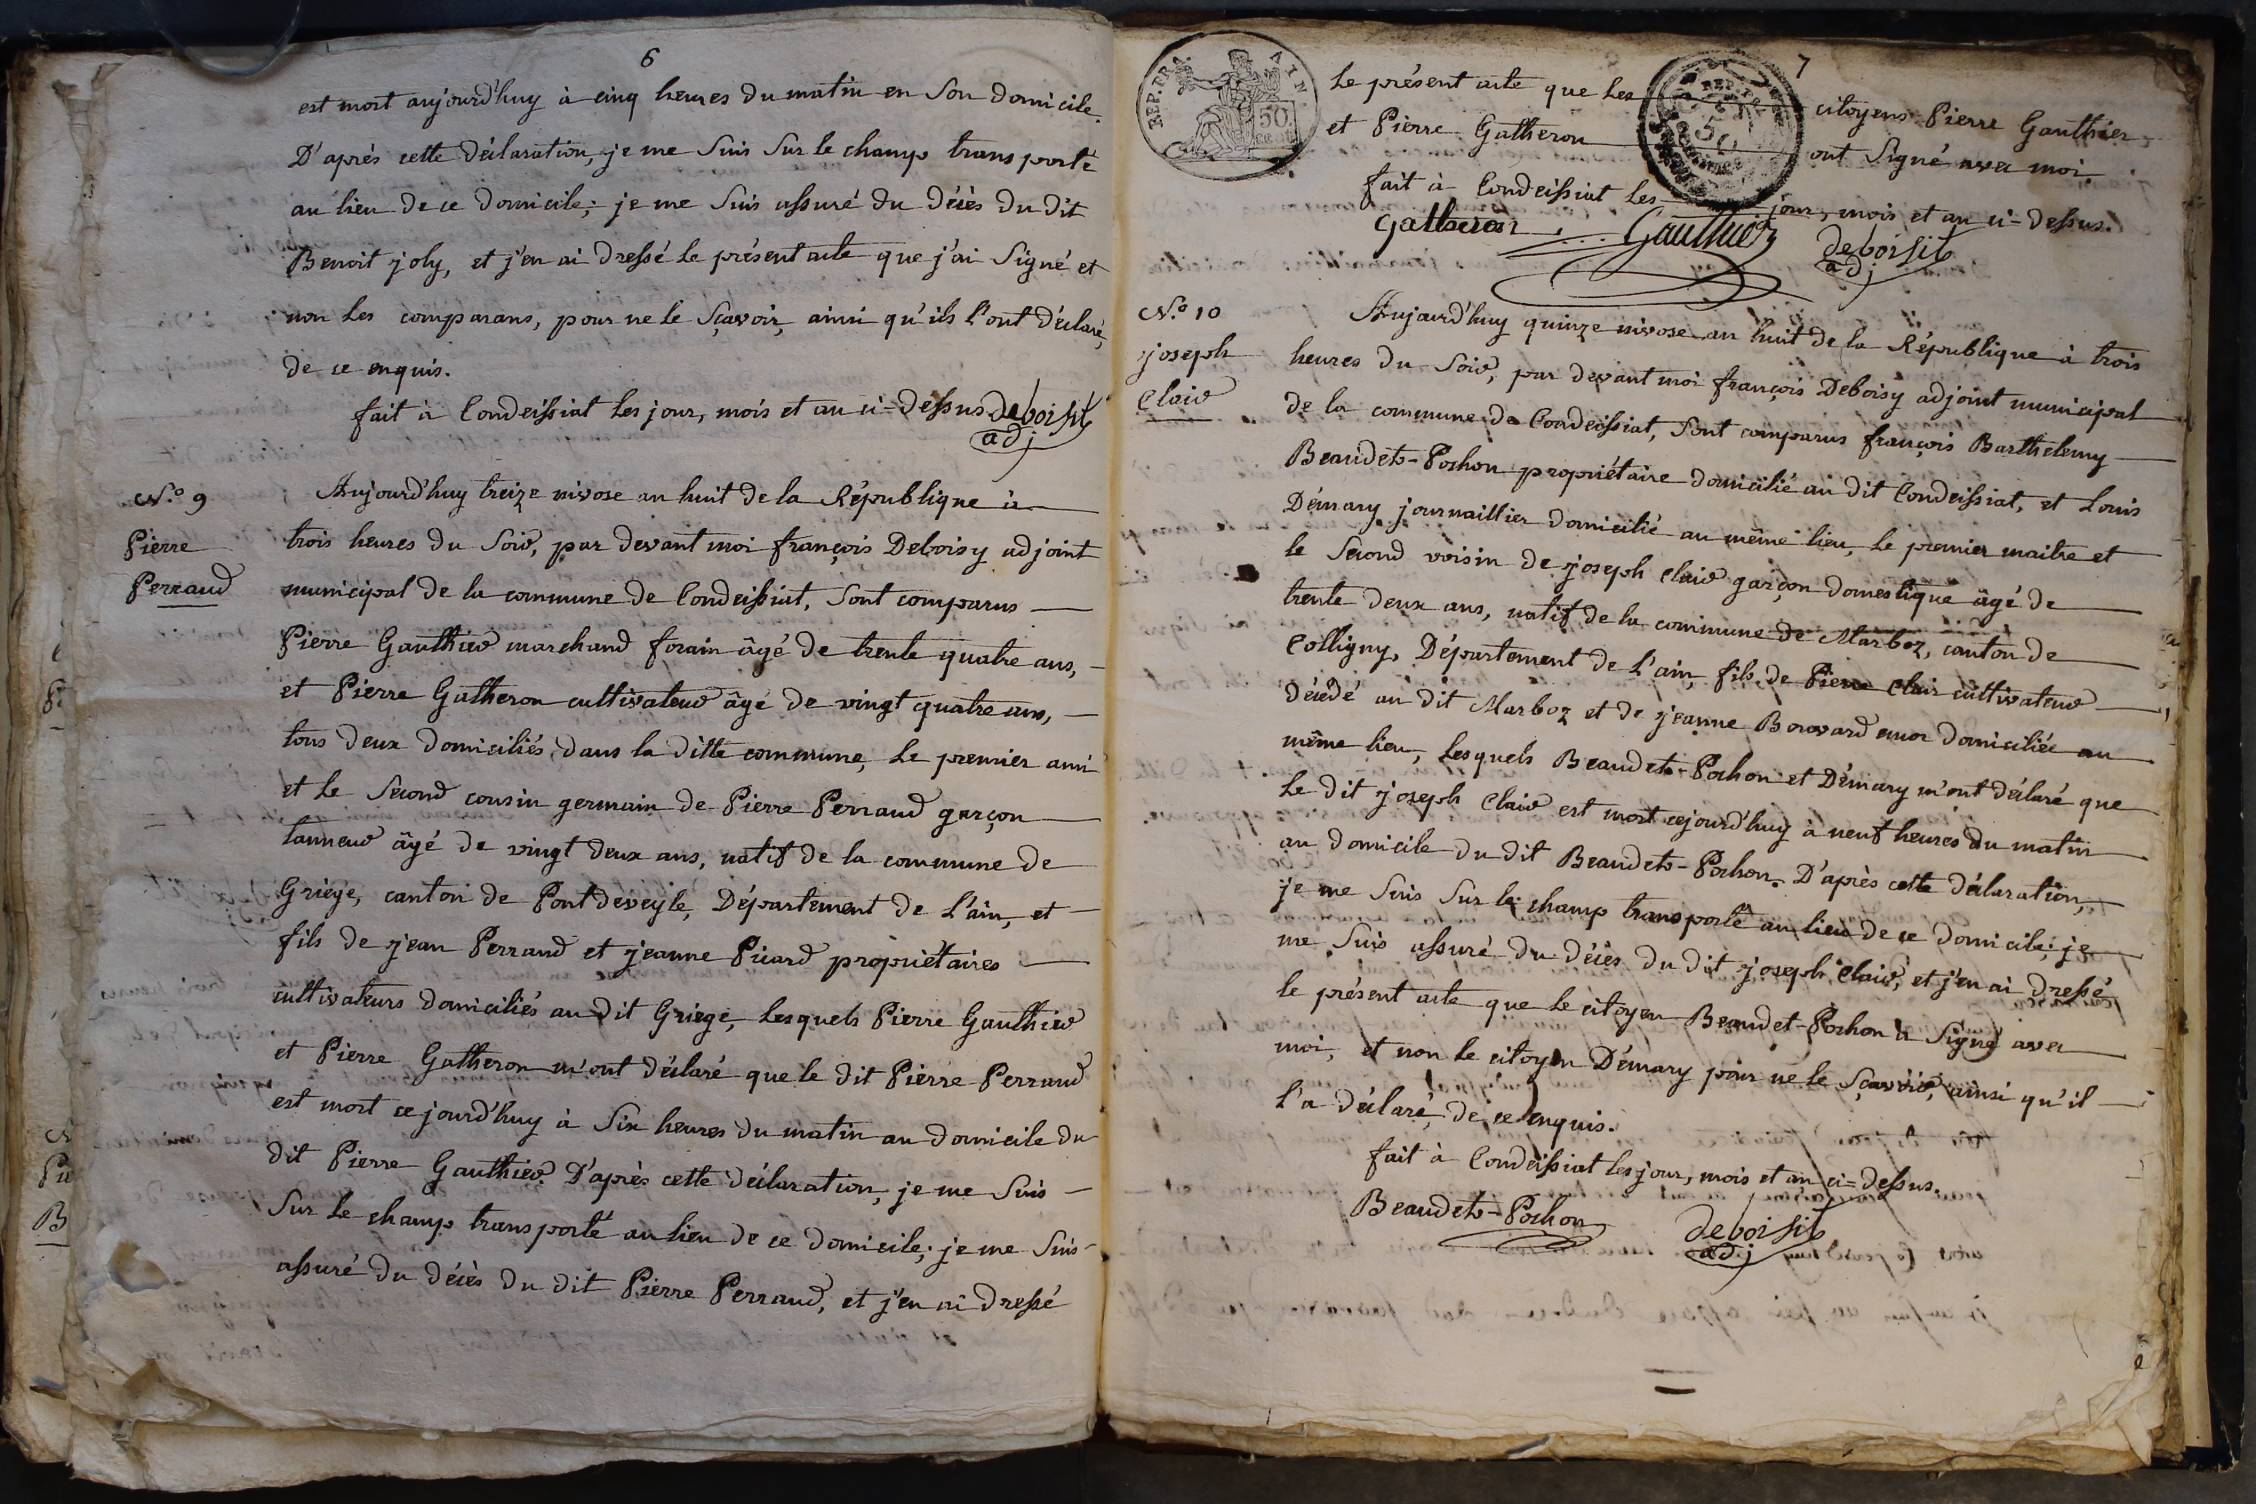 6
est mort aujourd'huy à cinq heures du matin en son domicile.
D'après cette déclaration, je me suis sur le champ transporté
au lieu de ce domicile; je me suis assuré du décès du dit
Benoit joly, et j'en ai dressé le présent acte que j'ai signé et
non les comparans, pour ne le sçavoir, ainsi qu'ils l'ont déclaré,
de ce enquis.
fait à Condeissiat les jour, mois et an ci-dessus deboisit
adj
N.o 9
Pierre
Perraud
Aujourd'huy treize nivose an huit de la République à
trois heures du soir, par devant moi françois Deboisy adjoint
municipal de la commune de Condeissiat, sont comparus
Pierre Gauthier marchand forain âgé de trente quatre ans,
et Pierre Gatheron cultivateur âgé de vingt quatre ans,
tous deux domiciliés dans la ditte commune, le premier ami
et le second cousin germain de Pierre Perraud garçon
tanneur âgé de vingt deux ans, natif de la commune de
Griege, canton de Pontdeveyle, Département de l'ain, et
fils de jean Perraud et jeanne Picard propriétaires
cultivateurs domiciliés au dit Griege, lesquels Pierre Gauthier
et Pierre Gatheron m'ont déclaré que le dit Pierre Perraud
est mort ce jourd'huy à six heures du matin au domicile du
dit Pierre Gauthier. D'après cette déclaration, je me suis
sur le champ transporté au lieu de ce domicile; je me suis
assuré du décès du dit Pierre Perraud, et j'en ai dressé
7
REP. FRA. AIN.
50. cent.
REP. FRA.
50
le présent acte que les citoyens Pierre Gauthier
et Pierre Gatheron ont signé avec moi.
fait à Condeissiat les jour, mois et an ci-dessus.
gatheron Gauthier deboisit
adj
N.o 10
joseph
Clair
Aujourd'huy quinze nivose an huit de la République à trois
heures du soir, par devant moi françois Deboisy adjoint municipal
de la commune de Condeissiat, sont comparus françois Barthelemy
Beaudet-Pochon propriétaire domicilié au dit Condeissiat, et Louis
Démary journaillier domicilié au même lieu, le premier maitre et
le second voisin de joseph Clair garçon domestique âgé de
trente deux ans, natif de la commune de Marboz, canton de
Colligny, Département de l'ain, fils de Pierre Clair cultivateur
décédé au dit Marboz et de jeanne Borvard encor domiciliée au
même lieu, lesquels Beaudet-Pochon et Démary m'ont déclaré que
le dit joseph Clair est mort cejourd'huy à neuf heures du matin
au domicile du dit Beaudet-Pochon. D'après cette déclaration,
je me suis sur le champ transporté au lieu de ce domicile; je
me suis assuré du décès du dit joseph Clair, et j'en ai dressé
le présent acte que le citoyen Beaudet-Pochon a signé avec
moi, et non le citoyen Démary pour ne le sçavoir, ainsi qu'il
l'a déclaré, de ce enquis.
fait à Condeissiat les jour, mois et an ci-dessus.
Beaudet-Pochon deboisit
adj